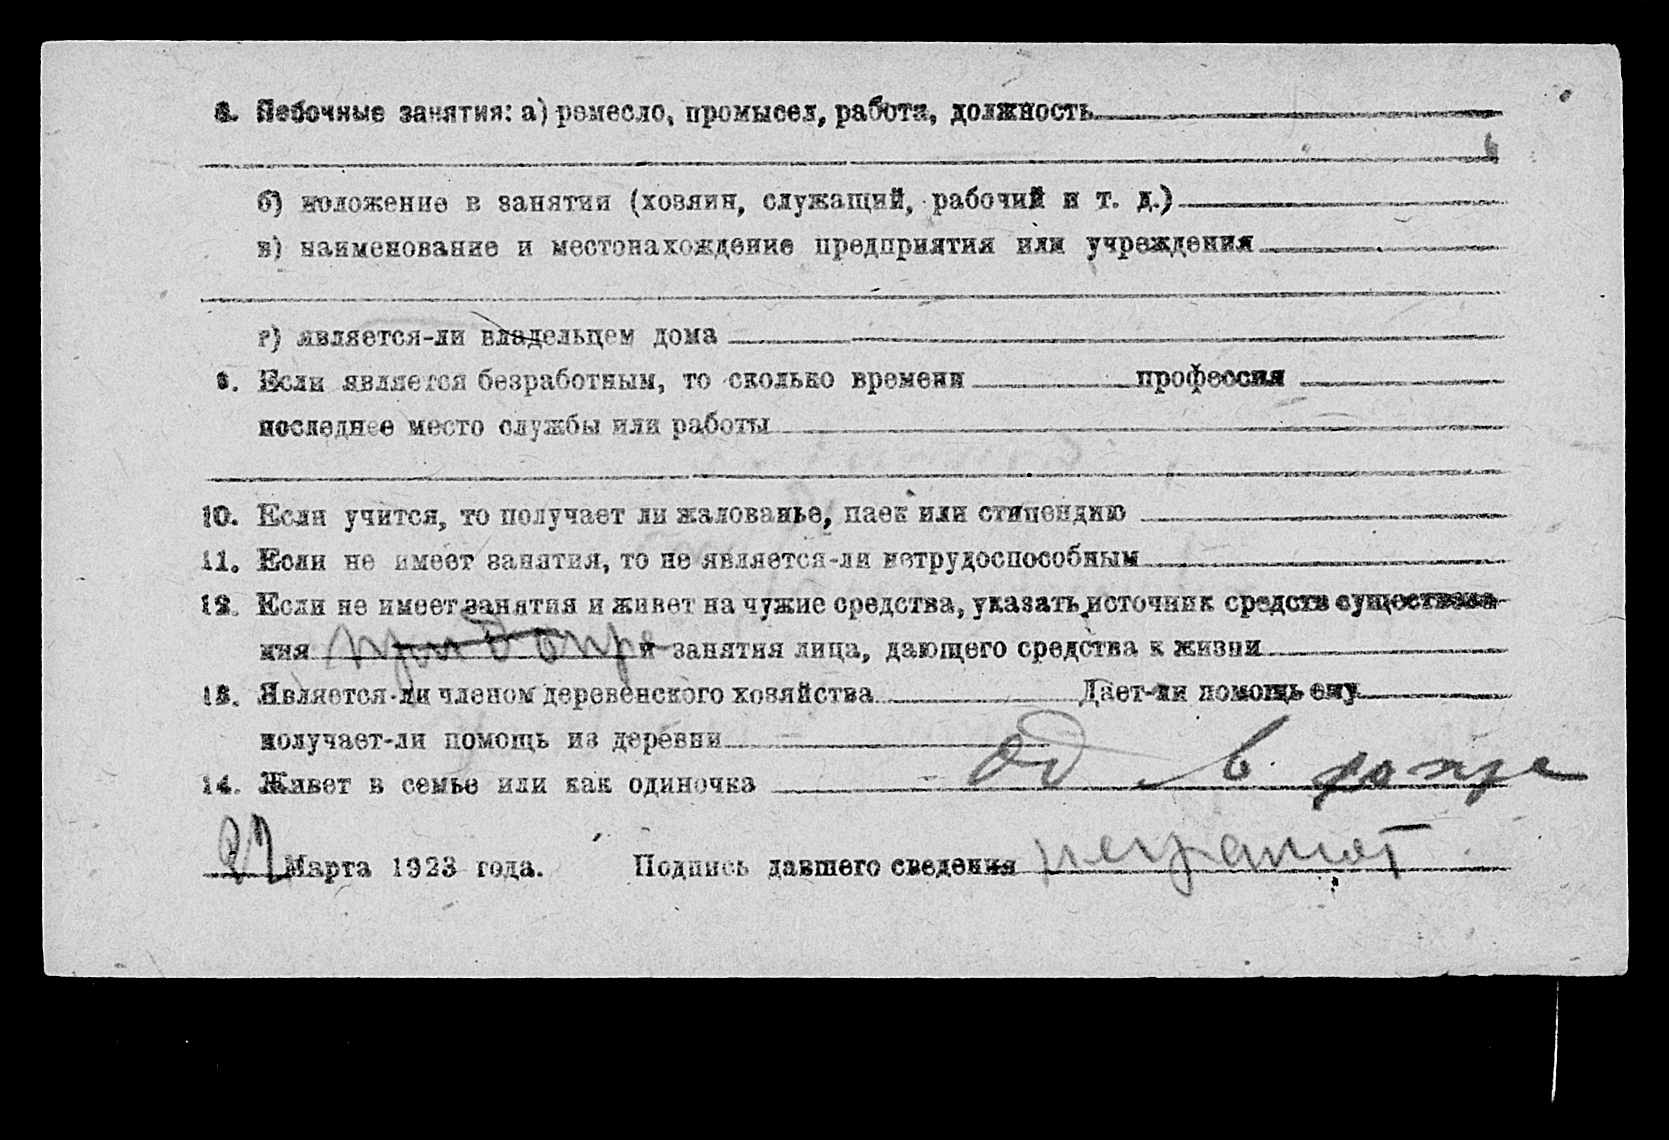 8. Побочные занятия: а) ремесло, промысел, работа, должность
б) положение в занятии (хозяин, служащий, рабочий и т. д.)
в) наименование и местонахождение предприятия или учреждения
г) является-ли владельцем дома
9. Если является безработным, то сколько времени профессия
последнее место службы или работы
10. Если учится, то получает ли жалованье, паек или стипендию
11. Если не имеет занятия, то не является-ли нетрудоспособным
12. Если не имеет занятия и живет на чужие средства, указать источник средств существова-
ния и занятия лица, дающего средства к жизни
13. Является-ли членом деревенского хозяйства Дает-ли помощь ему
получает-ли помощь из деревни
14. Живет в семье или как одиночка од в допре
27 Марта 1923 года. Подпись давшего сведения неграмот